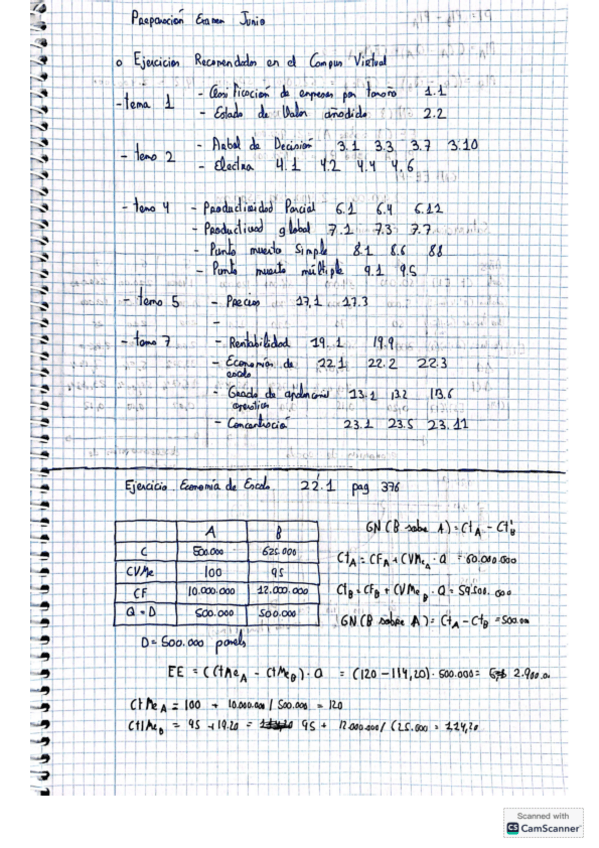 Preparación Examen Junio
o Ejercicios Recomendados en el Campus Virtual
- tema 1 - Clasificación de empresas por tamaño 1.1
- Estado de Valor añadido 2.2
- tema 2 - Arbol de Decisión 3.1 3.3 3.7 3.10
- Electra 4.1 4.2 4.4 4.6
- tema 4 - Productividad Parcial 6.1 6.4 6.12
- Productivad global 7.1 7.3 7.7
- Punto muerto Simple 8.1 8.6 8.8
- Punto muerto múltiple 9.1 9.5
- tema 5 - Precios 17,1 17.3
-
- tema 7 - Rentabilidad 19.1 19.9
- Economías de escala 22.1 22.2 22.3
- Grado de apalancam operativo 13.1 13.2 13.6
- Concentración 23.1 23.5 23.11
Ejercicio Economía de Escala 22.1 pag 376
A B
C 500.000 625.000
CVMe 100 95
CF 10.000.000 12.000.000
Q = D 500.000 500.000
D = 500.000 panels
GN (B sobre A) = Ct A - Ct B
Ct A = CF A + CVMe A · Q = 60.000.000
Ct B = CF B + CVMe B · Q = 59.500.000
GN (B sobre A) = Ct A - Ct B = 500.000
EE = (CtMe A - CtMe B) · Q = (120 - 114,20) · 500.000 = 2.900.0
CtMe A = 100 + 10.000.000 / 500.000 = 120
CtMe B = 95 + 19.20 = 95 + 12.000.000 / 625.000 = 114,20
Scanned with
CS CamScanner